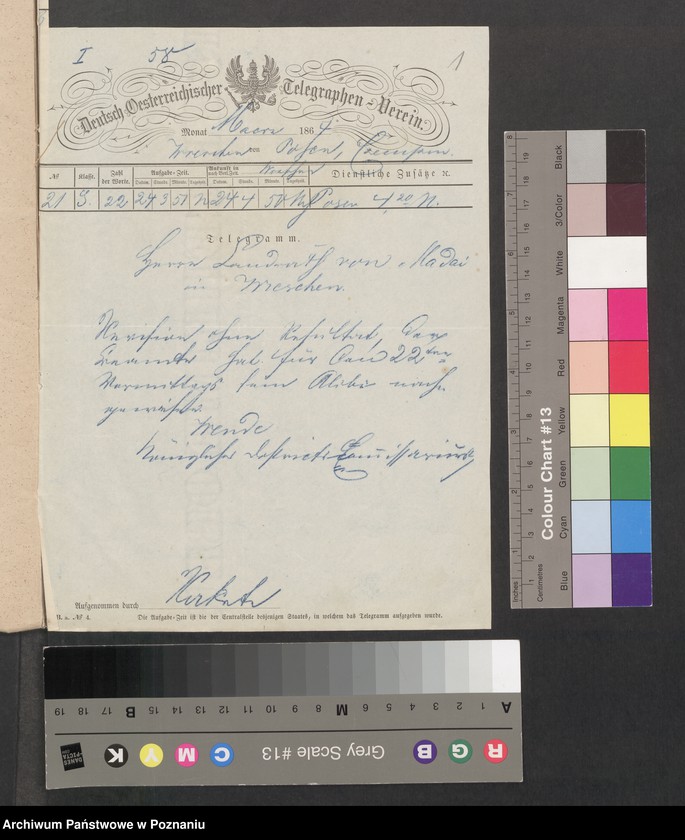 I 58 1
Deutsch Oesterreichischer Telegraphen-Verein.
Monat Maerz 1864
Wreschen von Posen,
№ Klasse. Zahl der Worte. Aufgabe-Zeit. Ankunft in Wreschen nach Breil. Zeit. Dienstliche Zusätze ꝛc.
Datum. Stunde. Minute. Tageszeit. Datum. Stunde. Minute. Tageszeit.
21 S. 22 24 3 51 N 24 4 50 N Posen 4,20 N.
Telegramm.
Herrn Landrath von Madai
in Wreschen.
Revision ohne Resultat, der
Beamte hat für den 22ten
Vormittags sein Alibi nach-
gewiesen.
Wende
Königlicher Districts Commissarius
Aufgenommen durch
II. a. № 4. Die Aufgabe-Zeit ist die der Centralstelle desjenigen Staates, in welchem das Telegramm aufgegeben wurde.
Colour Chart #13
Black
3/Color
White
Magenta
Red
Yellow
Green
Cyan
Blue
Inches
Centimetres
1 2 3 4 5 6 7 8 9 10 11 12 13 14 15 16 17 18 19
1 2 3 4 5 6 7 8
A 1 2 3 4 5 6 M 8 9 10 11 12 13 14 15 B 17 18 19
R G B Grey Scale #13 C M Y K
DANES PICTA
Archiwum Państwowe w Poznaniu